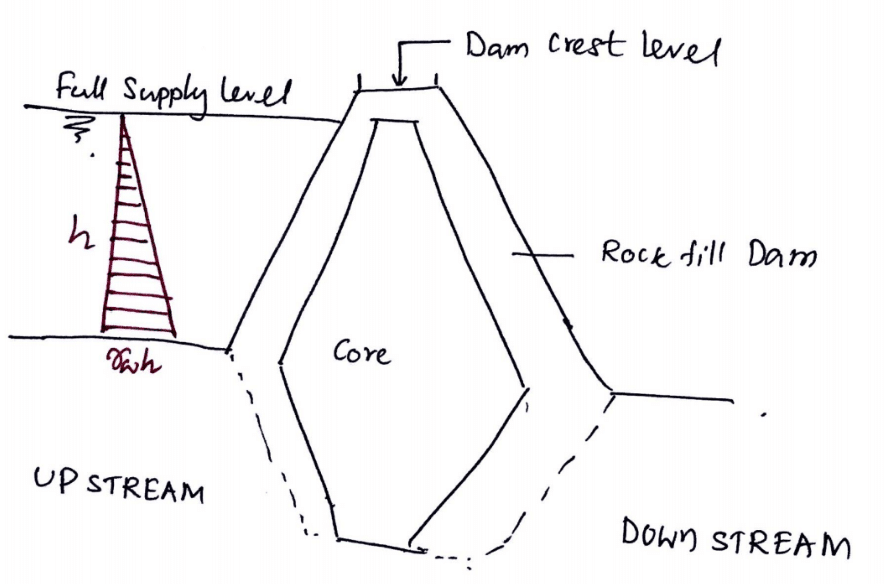 Dam Crest Level
Full Supply Level
h
Rock fill Dam
Core
γwh
UP STREAM
DOWN STREAM